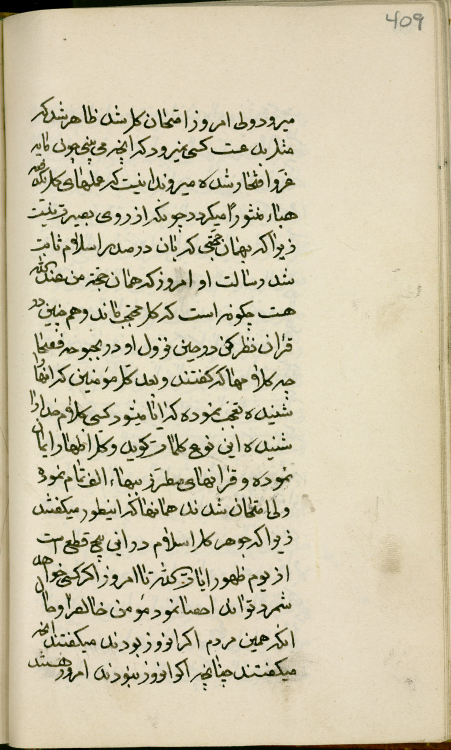 409
میرود ولی امروز امتحان کل شد ظاهر شد که
مثل بدعت کسی نمیرود که آنچه می بینی چون مایه
عز و افتخار شده میروند اینست که عملهای کل یکدفعه
هباء منثورا میگردد چونکه از روی بصیرت نیست
زیرا که بهمان حجتی که بآن در صدر اسلام ثابت
شد رسالت او امروز که همان حجة من عند الله
هست چگونه است که کل محتجب مانده و همچنین در
قرآن نظر کن در حین نزول او در بحبوحه فصحا
چه کلامها که گفتند و بعد کل مؤمنین که آنها را
شنیده تعجب نموده که آیا میشود کسی کلام خدا را
شنیده این نوع کلمات گوید و کل اظهار ایمان
نموده و قرآنهای مطرز ببهاء الف تمام نموده
ولی امتحان شدند همانها که اینطور میگفتند
زیرا که جوهر کل اسلام در این پنج قطع است
از یوم ظهور آیات الله تا امروز اگر کسی خواهد
شمرد تواند احصا نمود مؤمن خالص را و حال
آنکه همین مردم اگر آنروز بودند میگفتند آنچه
میگفتند چنانچه اگر آنروز نبودند امروز هستند